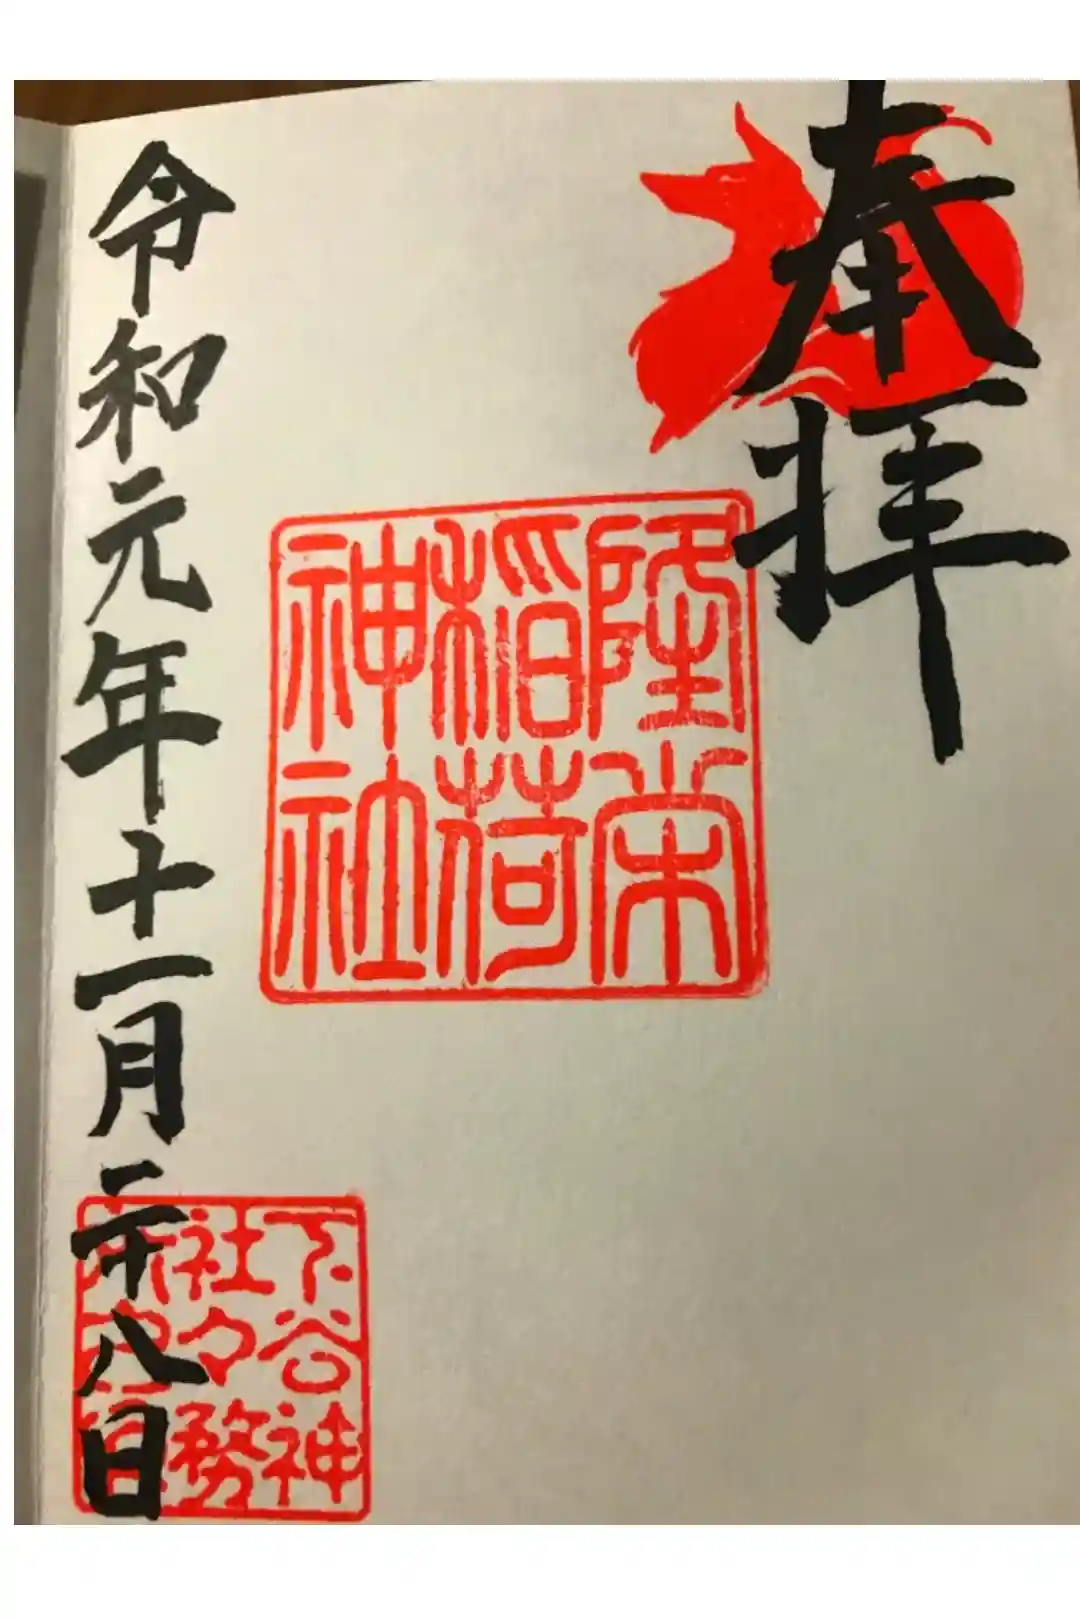 奉拝
隆栄
稲荷
神社
令和元年十一月二十八日
下谷神
社々務